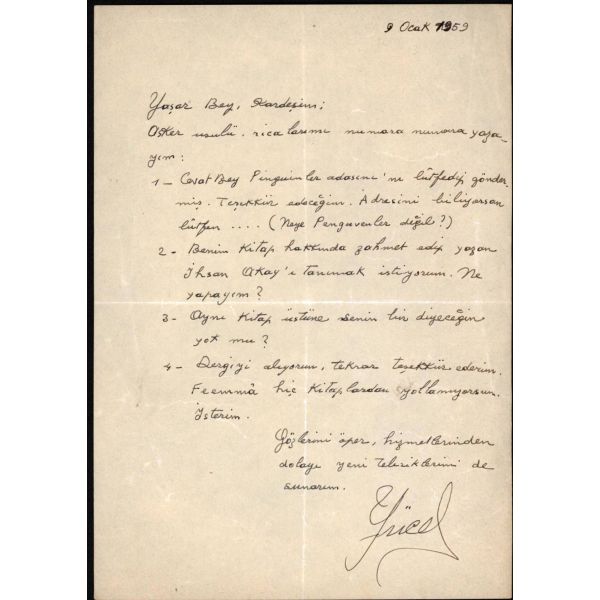 9 Ocak 1959
Yaşar Bey, Kardeşim;
Asker usulü, ricalarımı numara numara yaza-
yım:
1- Cevat Bey Penguinler adasını'nı lûtfedip gönder-
miş. Teşekkür edeceğim. Adresini biliyorsan
lûtfen .... (Neye Penguvenler değil?)
2- Benim Kitap hakkında zahmet edip yazan
İhsan Akay'ı tanımak istiyorum. Ne
yapayım?
3- Aynı Kitap üstüne senin bir diyeceğin
yok mu?
4- Dergiyi alıyorum, tekrar teşekkür ederim.
Feemmâ hiç Kitaplardan yollamıyorsun.
İsterim.
Gözlerini öper, hizmetlerinden
dolayı yeni tebriklerimi de
sunarım.
Yücel